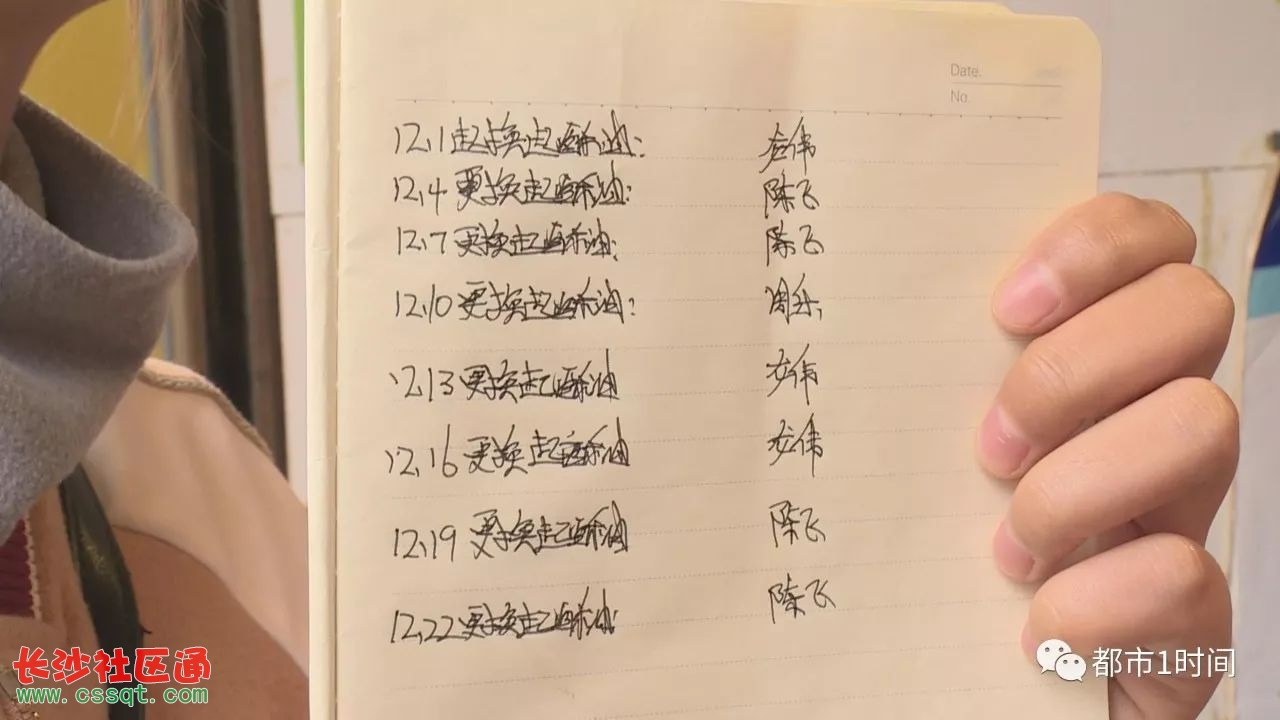 Date.
No.
12.1起换起酥油: 龙伟
12.4更换起酥油: 陈飞
12.7更换起酥油: 陈飞
12.10更换起酥油: 周乐
12.13更换起酥油 龙伟
12.16更换起酥油 龙伟
12.19更换起酥油 陈飞
12.22更换起酥油 陈飞
长沙社区通
www.cssqt.com
都市1时间